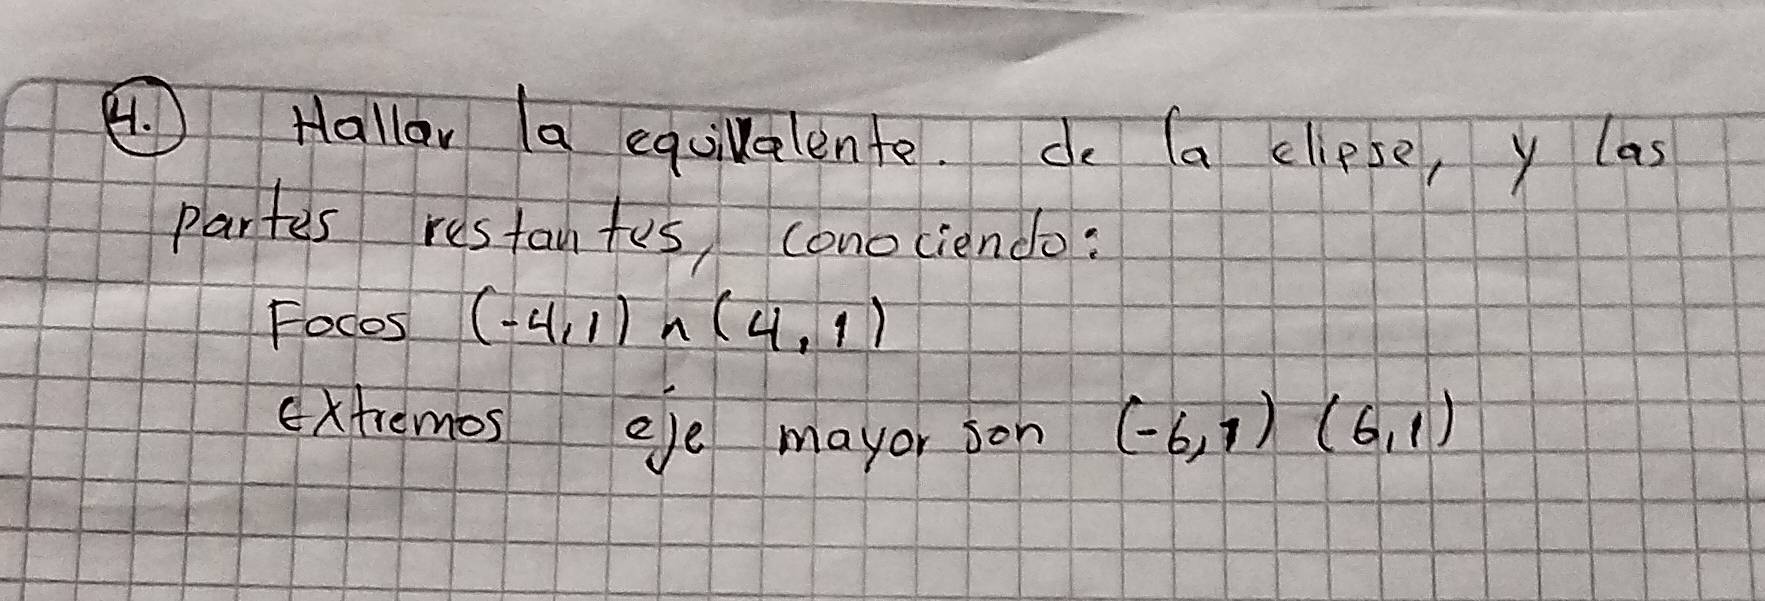 4. Hallar la equivalente. de la elipse, y las
partes restantes, conociendo:
Focos (-4,1) n (4,1)
extremos eje mayor son (-6,1) (6,1)